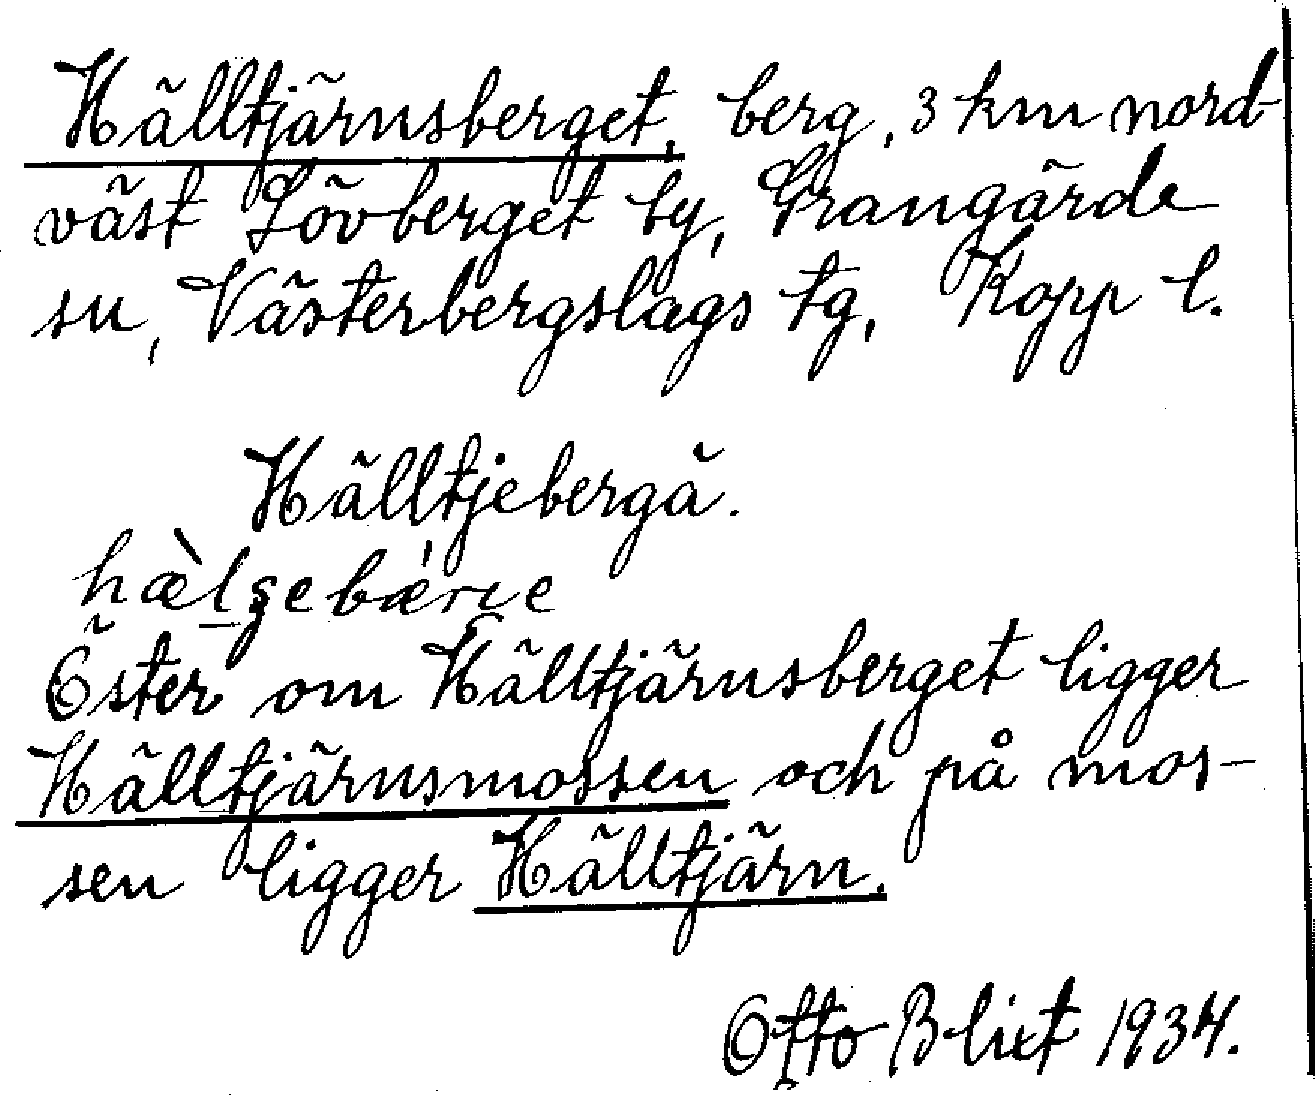 Hälltjärnsberget, berg, 3 km nord-
väst Lövberget by, Grangärde
sn, Västerbergslags tg, Kopp l.
Hälltjebergä.
hæ̀lşebǽrıe
Öster om Hälltjärnsberget ligger
Hälltjärnsmossen och på mos-
sen ligger Hälltjärn.
Otto Blixt 1934.